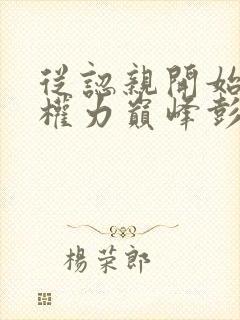 從認親開始
權力巔峰彭
楊荣郎